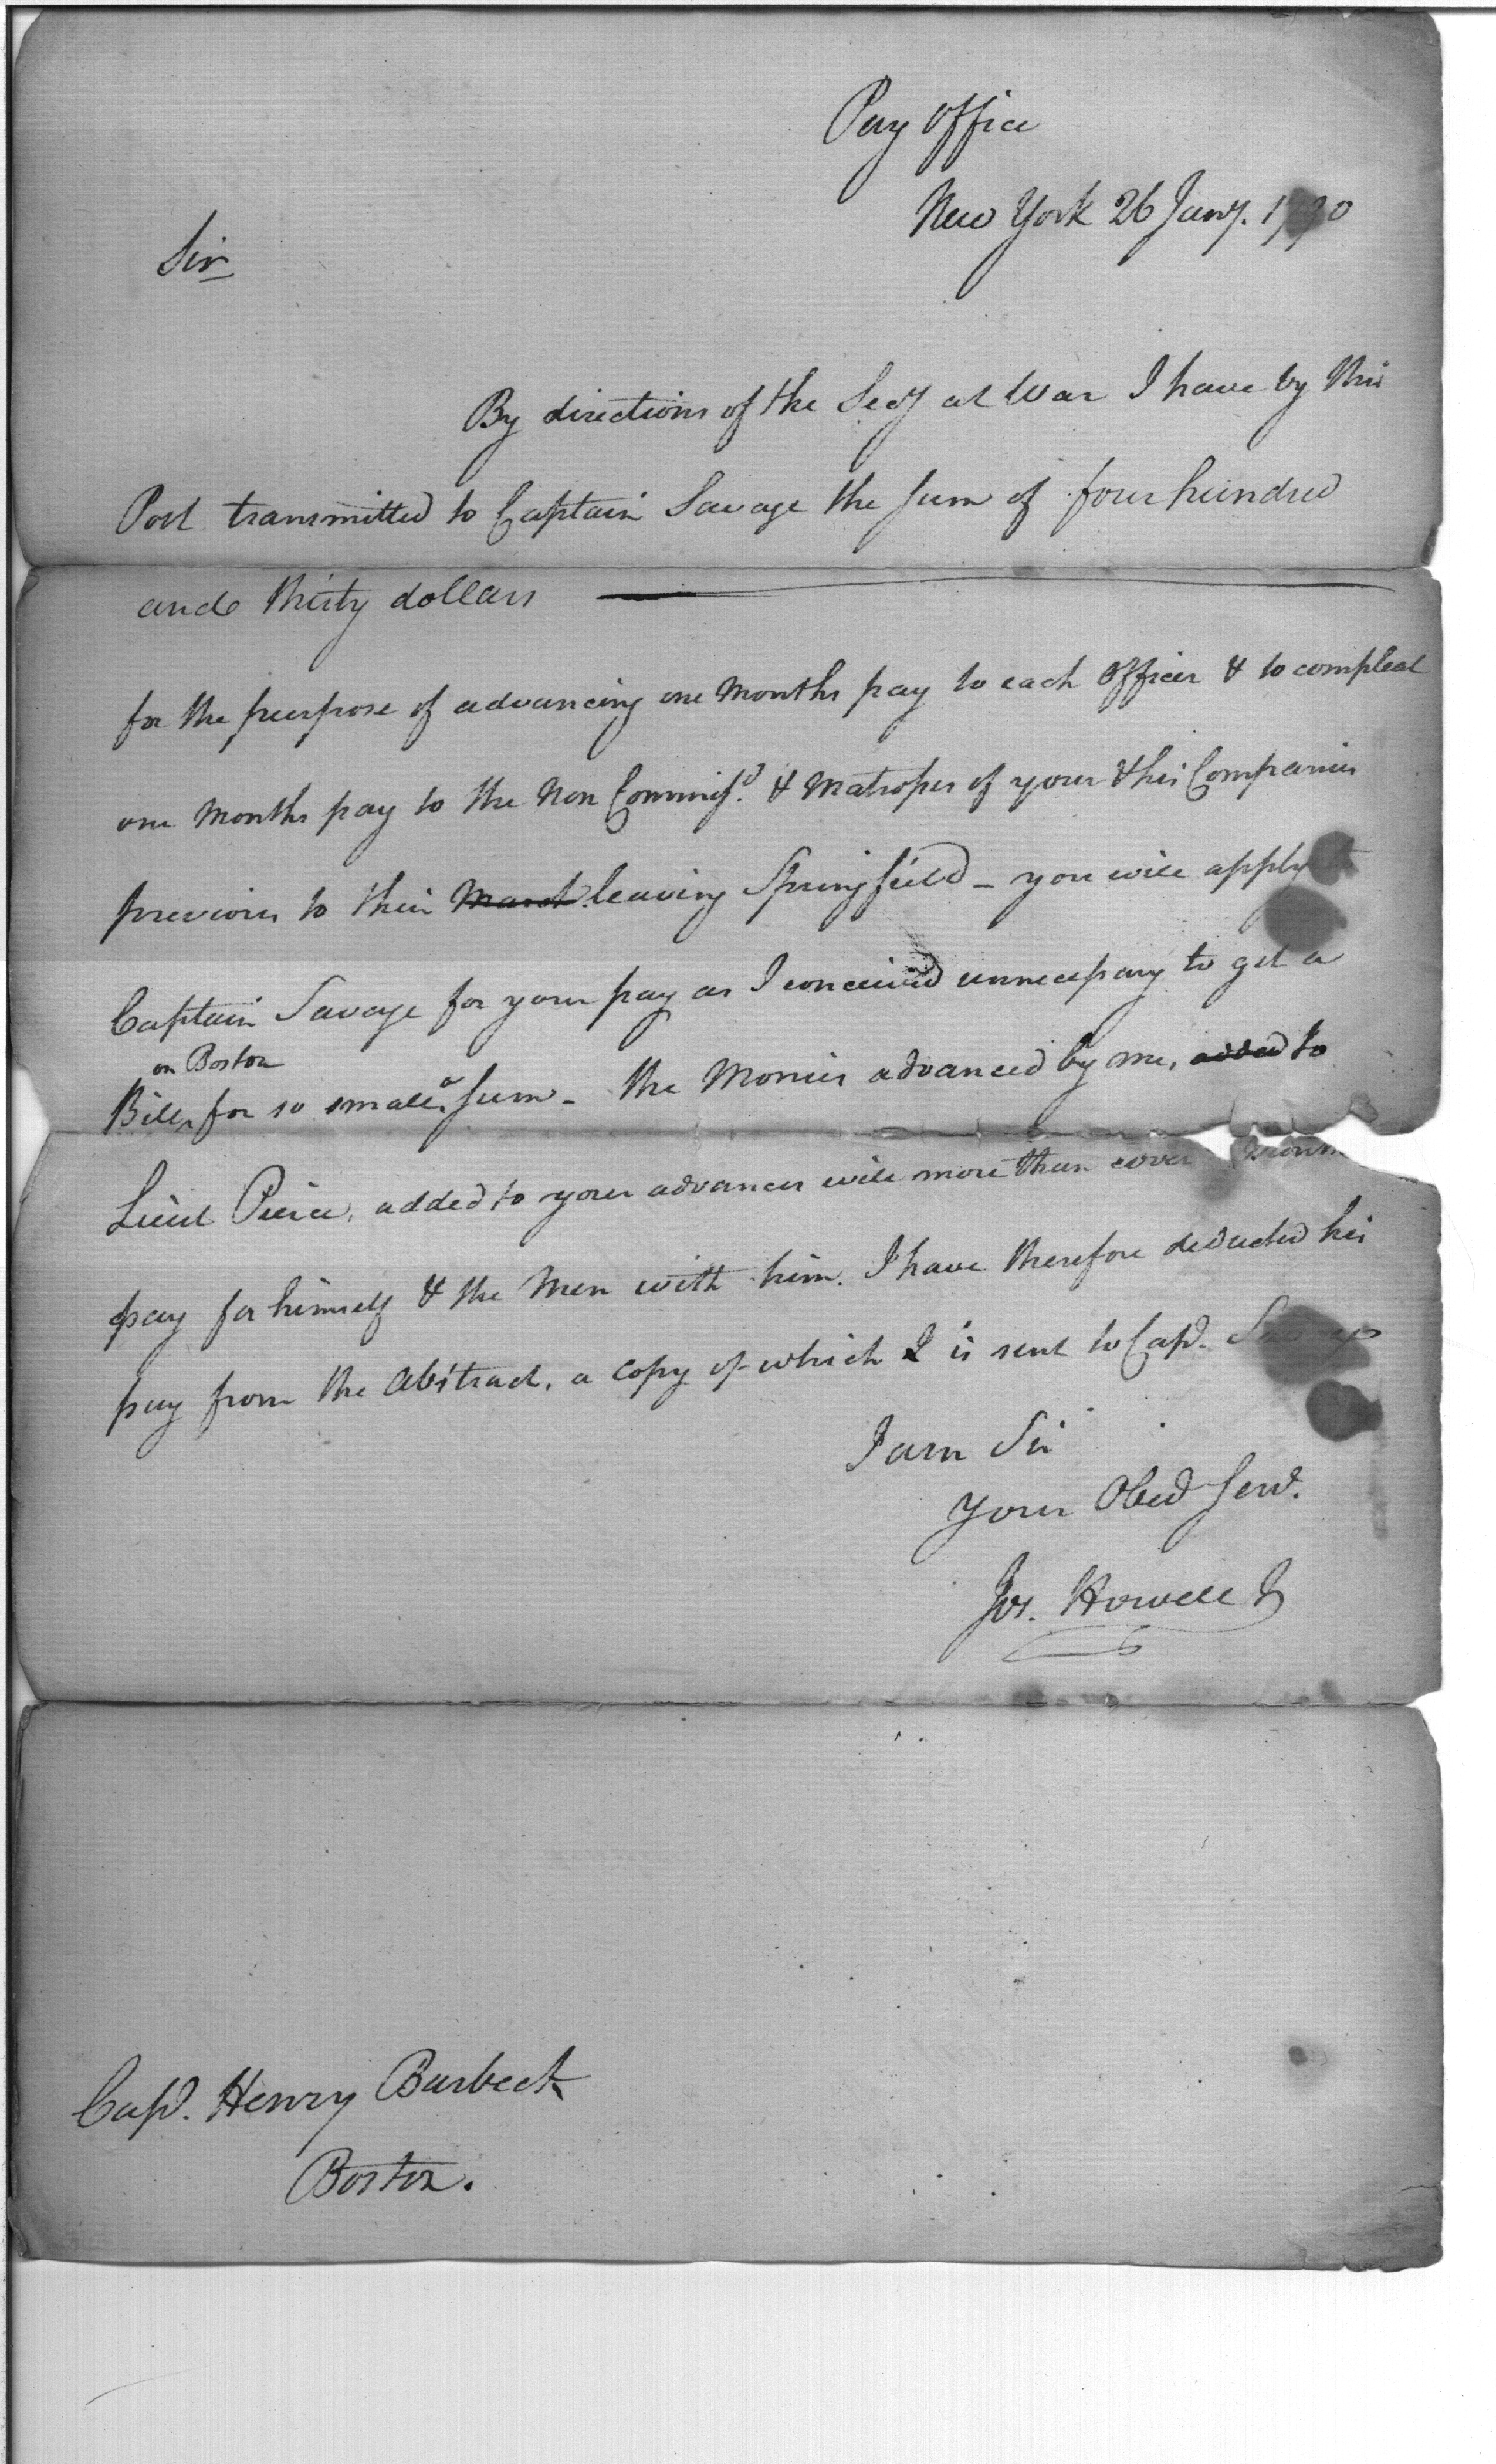 Pay Office
New York 26 Jany. 1790
Sir
By directions of the Secy at War I have by this
Post transmitted to Captain Savage the sum of four hundred
and thirty dollars
for the purpose of advancing one Months pay to each Officer & to compleat
one Months pay to the Non Commissd. & Matrosses of your & his Companies
previous to their March leaving Springfield - you will apply to
Captain Savage for your pay as I conceived unnecessary to get a
on Boston
Bill for so small a sum - the Monies advanced by me, added to
Lieut Peirce, added to your advances will more than cover
pay for himself & the Men with him. I have therefore deducted his
pay from the Abstract, a copy of which I is sent to Capt. Savage
I am Sir
Your Obed Servt.
Jos. Howell Jr
Capt. Henry Burbeck
Boston.